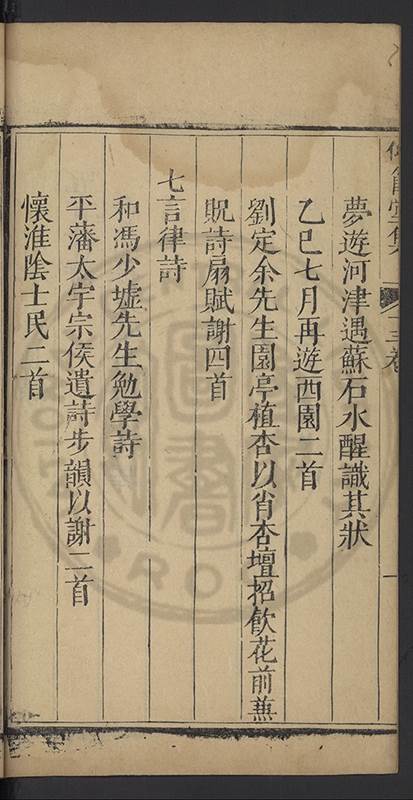 夢遊河津遇蘇石水醒識其狀
乙巳七月再遊西園二首
劉定余先生園亭植杏以肖杏壇招飲花前蕪
貺詩扇賦謝四首
七言律詩
和馮少墟先生勉學詩
平藩太宇宗侯遺詩步韻以謝二首
懷淮陰士民二首